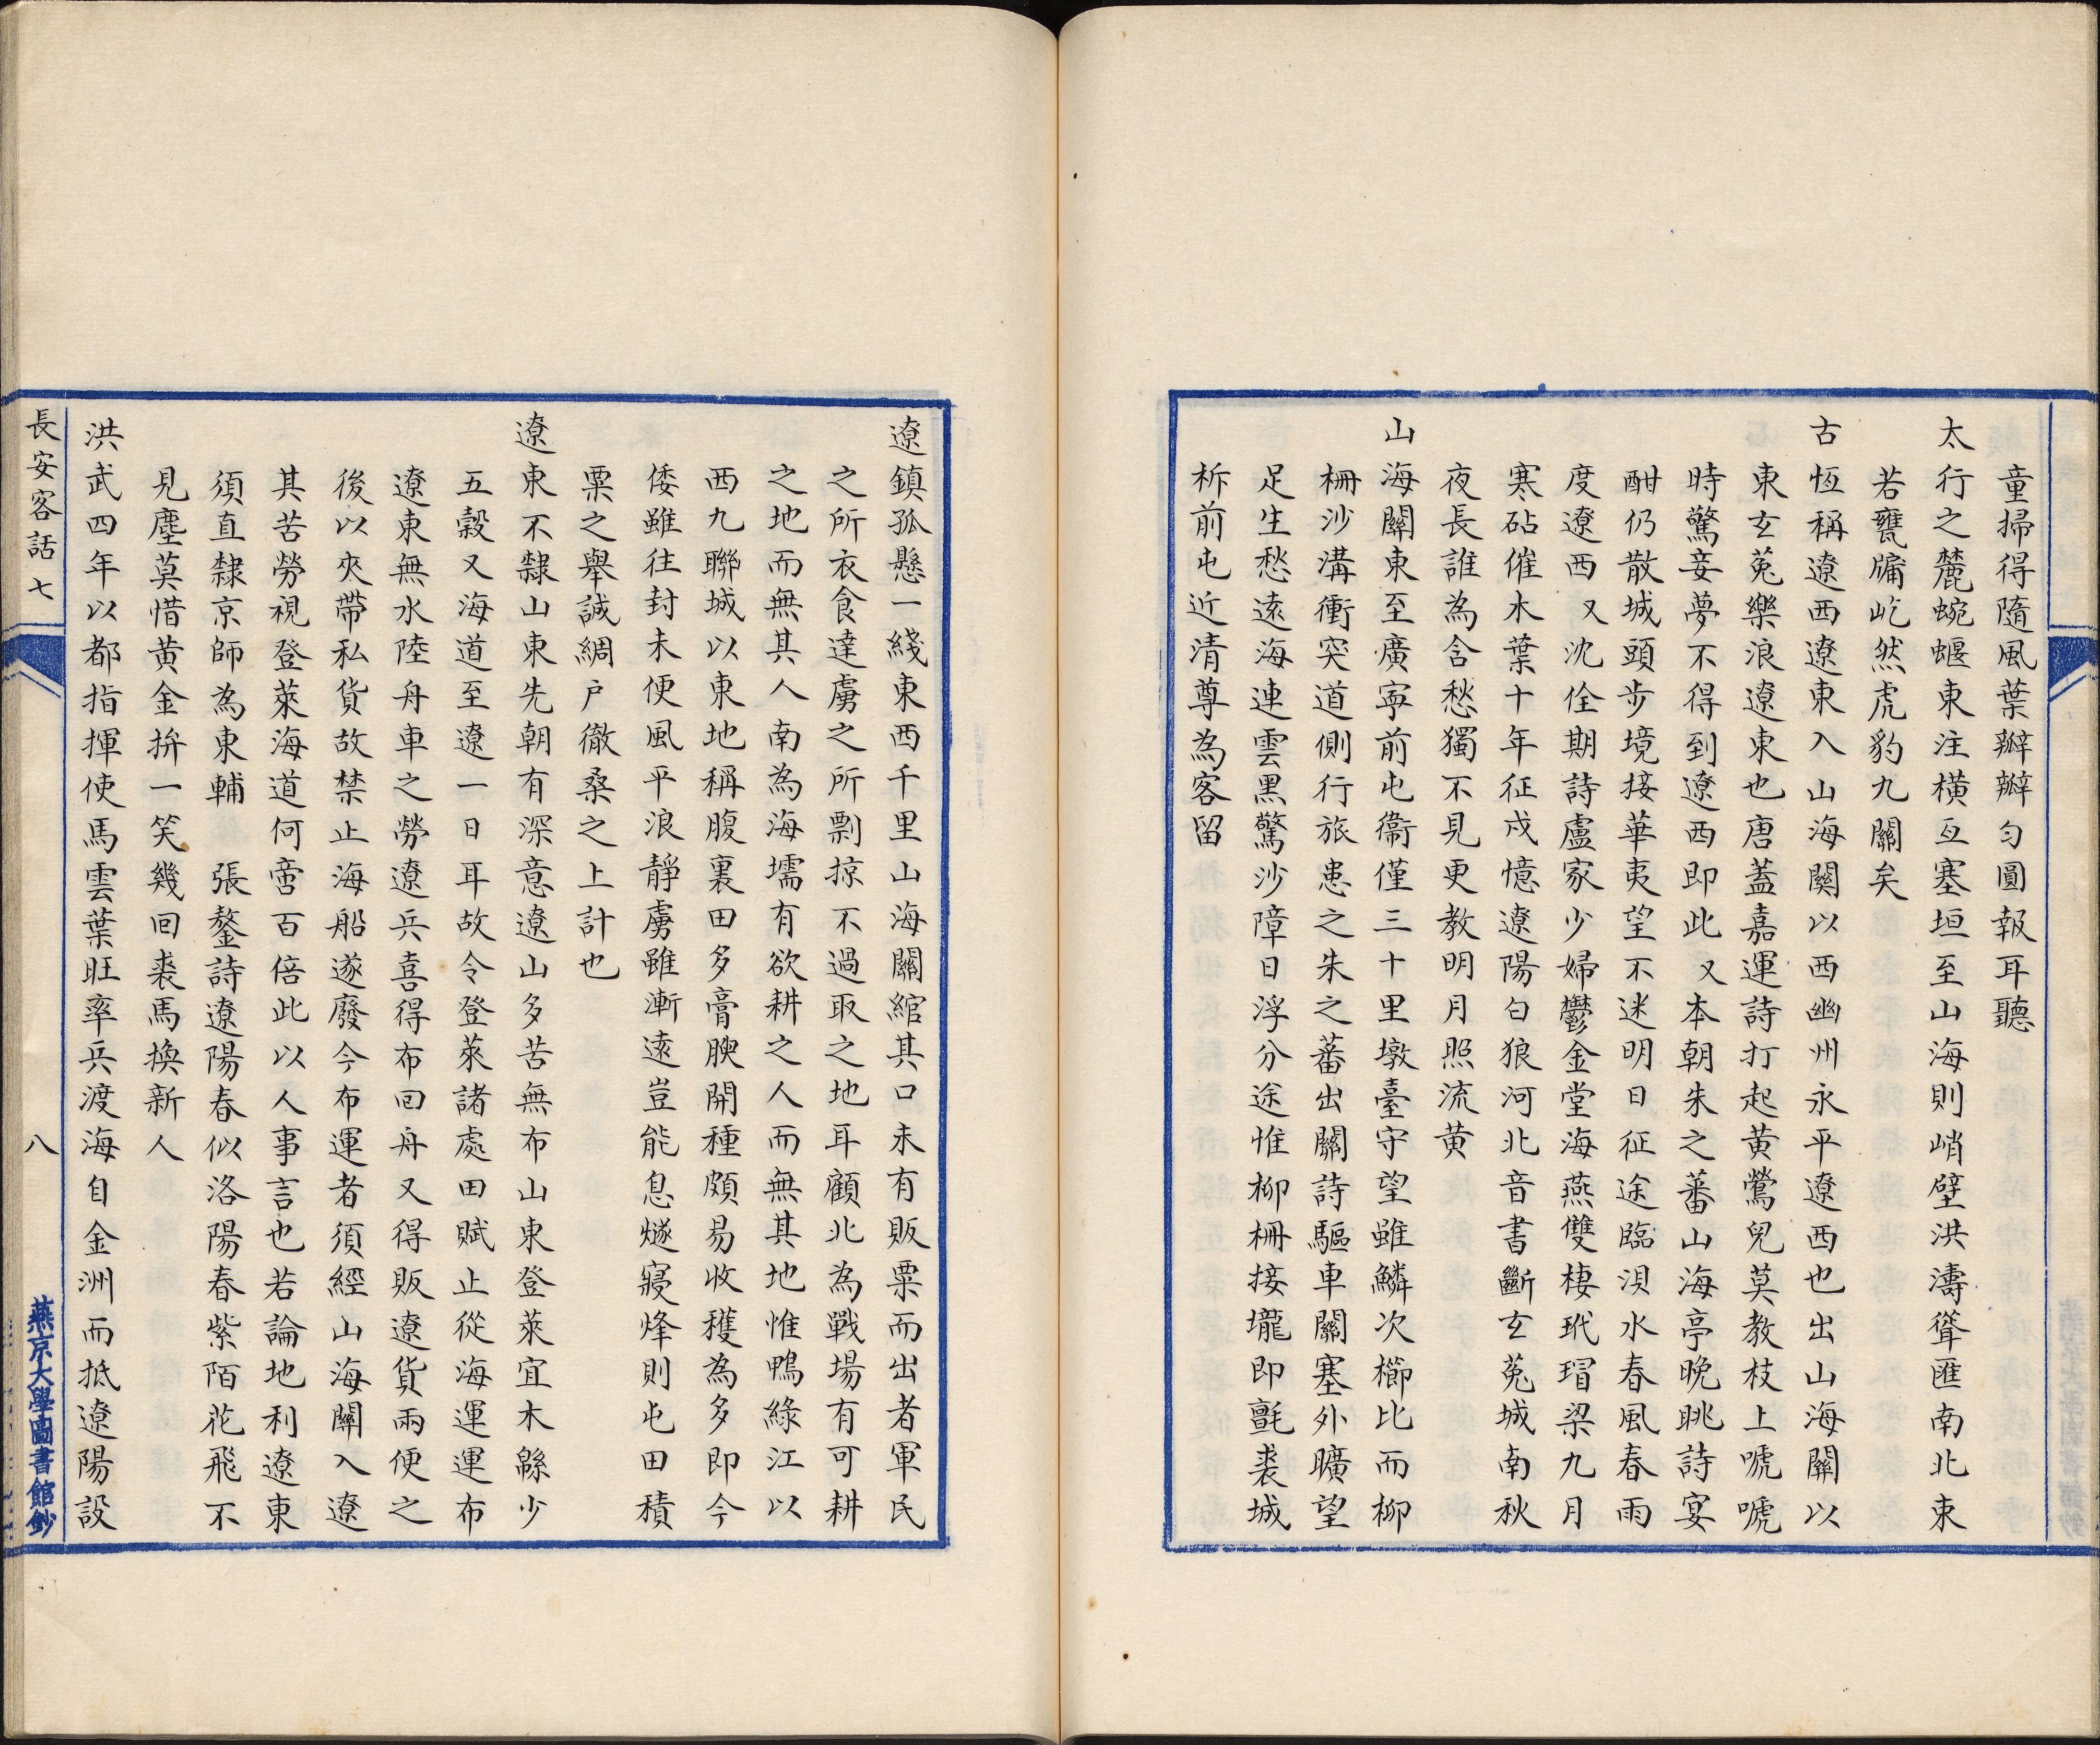 童掃得隨風葉瓣瓣勻圓報耳聽
太行之麓蜿蜒東注橫亙塞垣至山海則峭壁洪濤聳匯南北東
若甕牖屹然虎豹九關矣
古恆稱遼西遼東入山海関以西幽州永平遼西也出山海關以
東玄菟樂浪遼東也唐蓋嘉運詩打起黃鶯兒莫教枝上唬唬
時驚妾夢不得到遼西即此又本朝朱之蕃山海亭晚眺詩宴
酣仍散城頭步境接華夷望不迷明日征途臨浿水春風春雨
度遼西又沈佺期詩盧家少婦鬱金堂海燕雙棲玳瑁梁九月
寒砧催木葉十年征戍憶遼陽白狼河北音書斷玄菟城南秋
夜長誰為含愁獨不見更教明月照流黃
山海關東至廣寧前屯衞僅三十里墩臺守望雖鱗次櫛比而柳
柵沙溝衝突道側行旅患之朱之蕃出關詩驅車關塞外曠望
足生愁遠海連雲黑驚沙障日浮分途惟柳柵接壠即氈裘城
柝前屯近清尊為客留
遼鎮孤懸一綫東西千里山海關綰其口未有販粟而出者軍民
之所衣食達虜之所剽掠不過取之地耳顧北為戰場有可耕
之地而無其人南為海壖有欲耕之人而無其地惟鴨綠江以
西九聯城以東地稱腹裏田多膏腴開種頗易收穫為多即今
倭雖往封未便風平浪靜虜雖漸遠豈能息燧寢烽則屯田積
粟之舉誠綢戶徹桑之上計也
遼東不隸山東先朝有深意遼山多苦無布山東登萊宜木緜少
五穀又海道至遼一日耳故令登萊諸處田賦止從海運運布
遼東無水陸舟車之勞遼兵喜得布回舟又得販遼貨兩便之
後以夾帶私貨故禁止海船遂廢今布運者須經山海關入遼
其苦勞視登萊海道何啻百倍此以人事言也若論地利遼東
須直隸京師為東輔　張鏊詩遼陽春似洛陽春紫陌花飛不
見塵莫惜黃金拚一笑幾回裘馬換新人
洪武四年以都指揮使馬雲葉旺率兵渡海自金洲而抵遼陽設
長安客話 七
八
燕京大學圖書館鈔